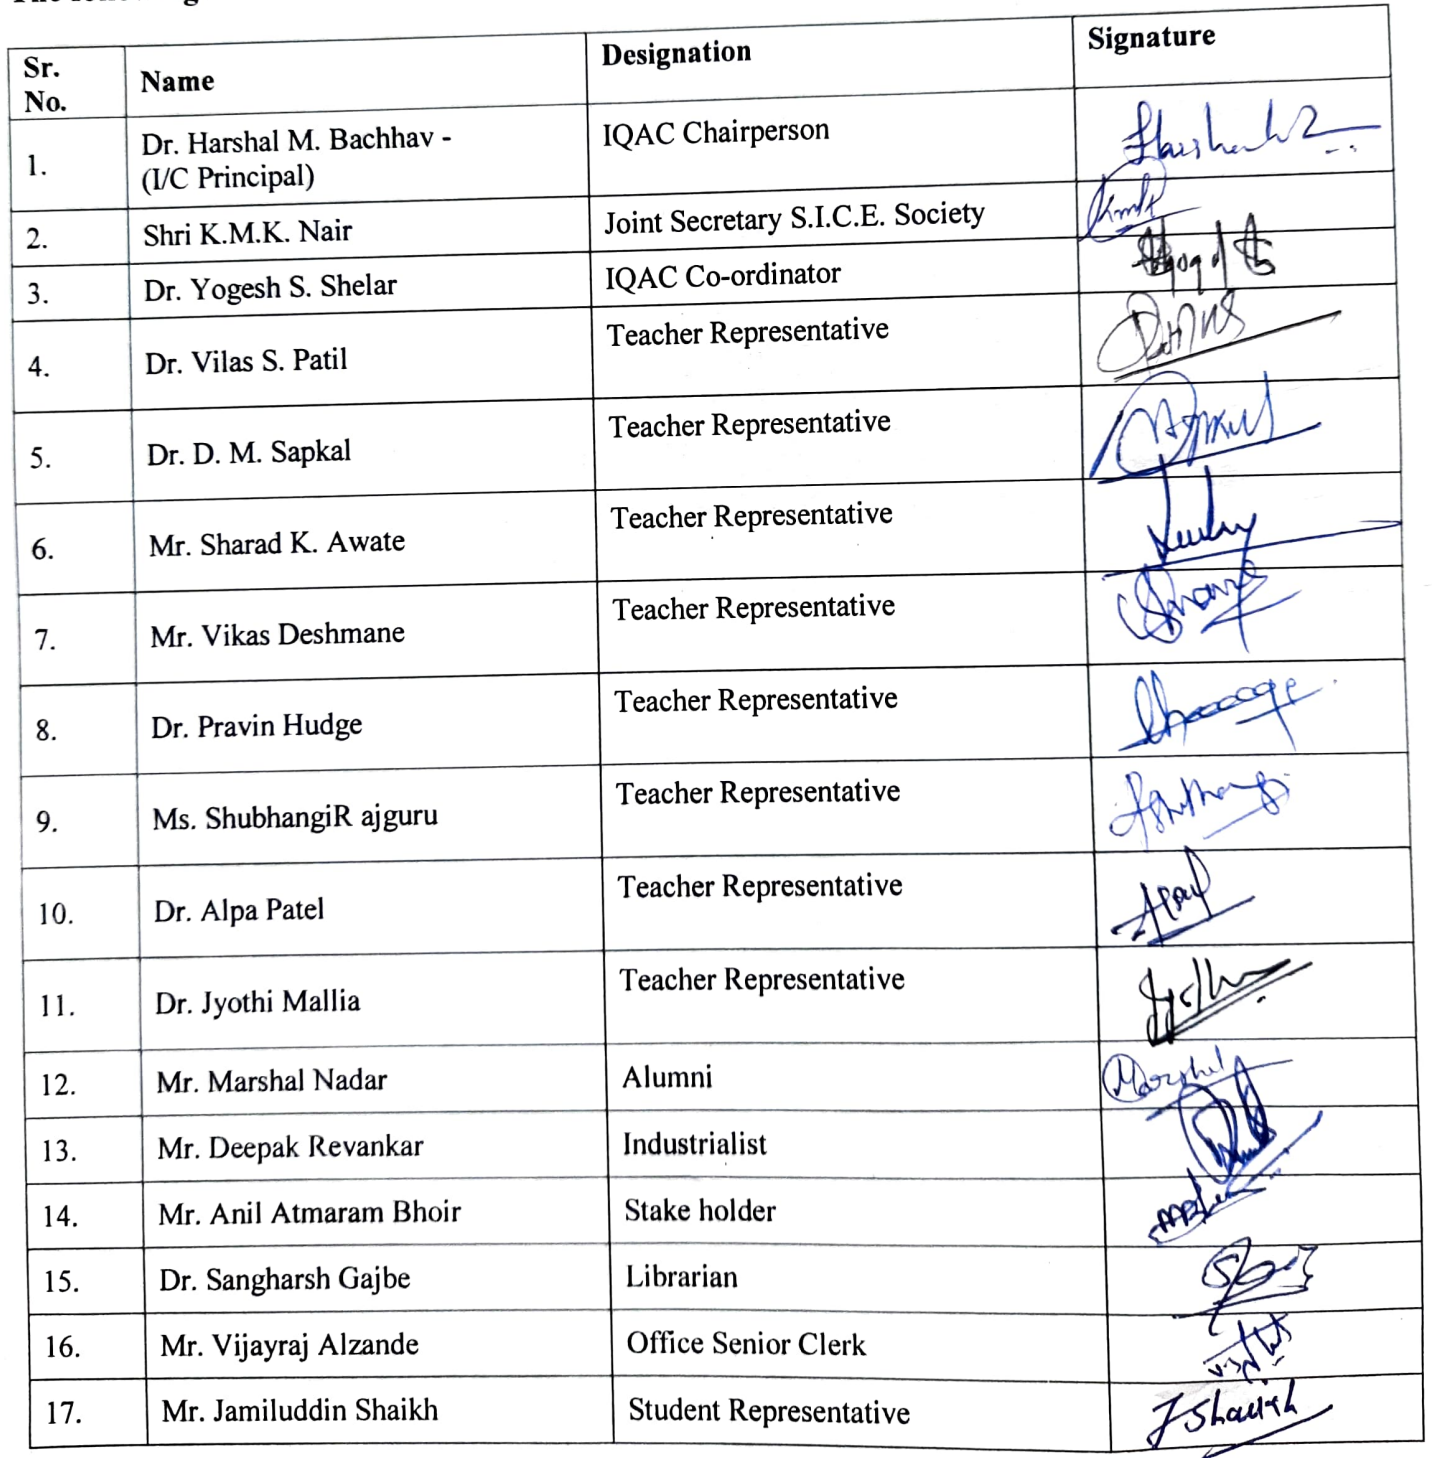 Sr. No. Name Designation Signature
1. Dr. Harshal M. Bachhav - (I/C Principal) IQAC Chairperson
2. Shri K.M.K. Nair Joint Secretary S.I.C.E. Society
3. Dr. Yogesh S. Shelar IQAC Co-ordinator
4. Dr. Vilas S. Patil Teacher Representative
5. Dr. D. M. Sapkal Teacher Representative
6. Mr. Sharad K. Awate Teacher Representative
7. Mr. Vikas Deshmane Teacher Representative
8. Dr. Pravin Hudge Teacher Representative
9. Ms. ShubhangiR ajguru Teacher Representative
10. Dr. Alpa Patel Teacher Representative
11. Dr. Jyothi Mallia Teacher Representative
12. Mr. Marshal Nadar Alumni Marshal
13. Mr. Deepak Revankar Industrialist
14. Mr. Anil Atmaram Bhoir Stake holder
15. Dr. Sangharsh Gajbe Librarian
16. Mr. Vijayraj Alzande Office Senior Clerk
17. Mr. Jamiluddin Shaikh Student Representative JShaikh